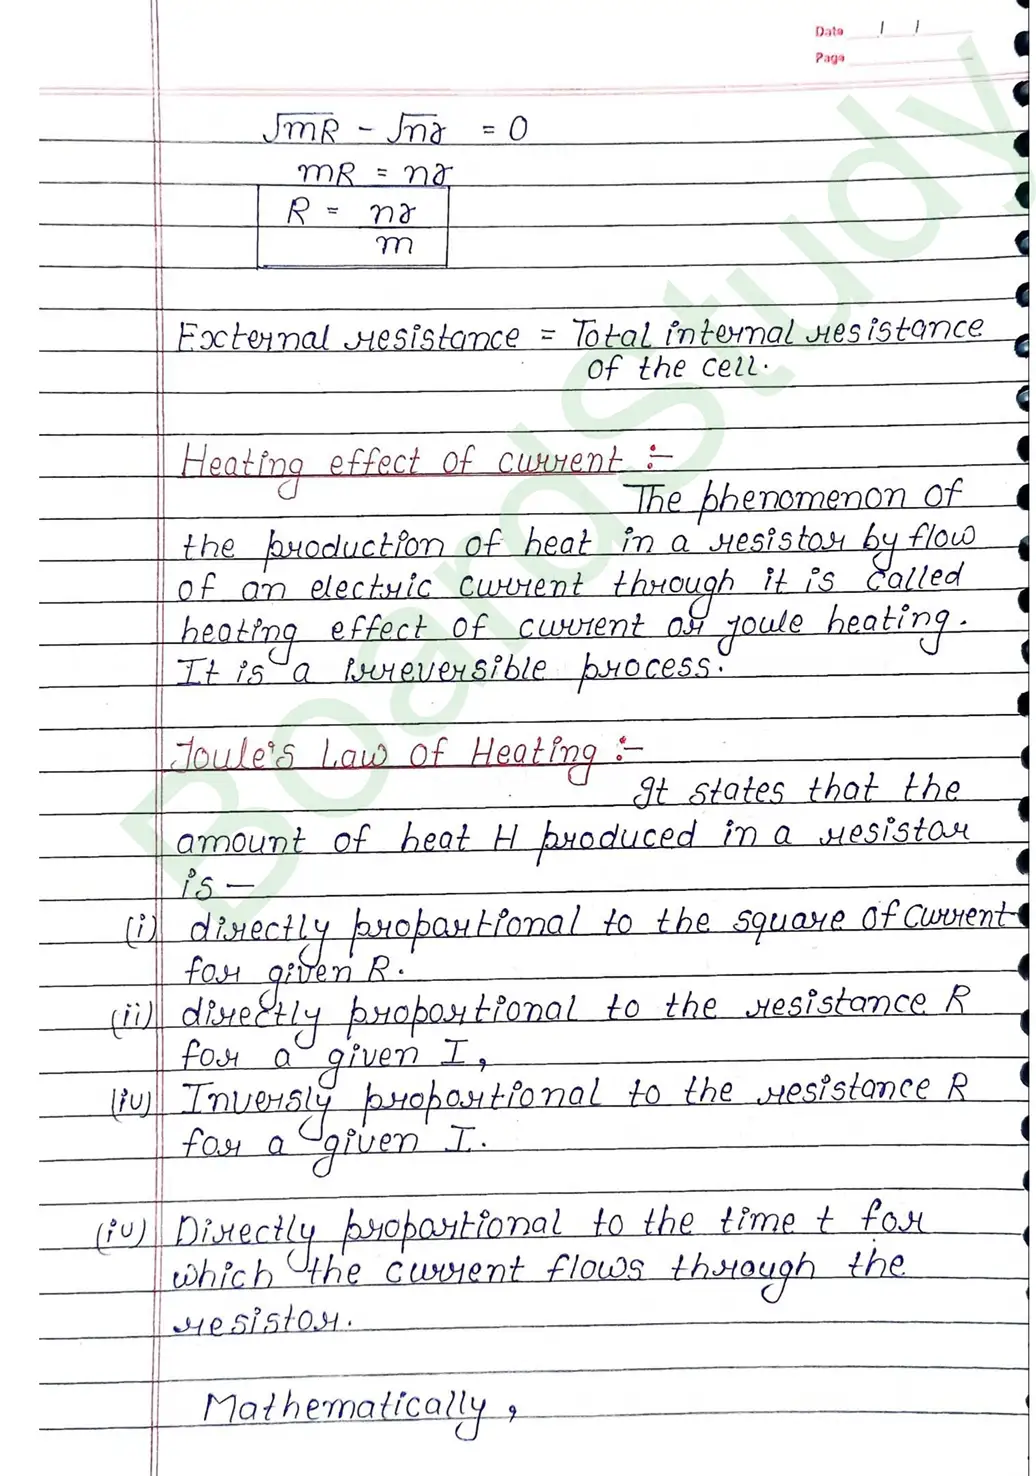 Date / /
Page
√mR - √nr = 0
mR = nr
R = nr
m
External resistance = Total internal resistance
of the cell.
Heating effect of current :-
The phenomenon of
the production of heat in a resistor by flow
of an electric current through it is called
heating effect of current or joule heating.
It is a irreversible process.
Joule's Law of Heating :-
It states that the
amount of heat H produced in a resistor
is —
(i) directly proportional to the square of current
for given R.
(ii) directly proportional to the resistance R
for a given I,
(iv) Inversly proportional to the resistance R
for a given I.
(iv) Directly proportional to the time t for
which the current flows through the
resistor.
Mathematically,
BoardStudy